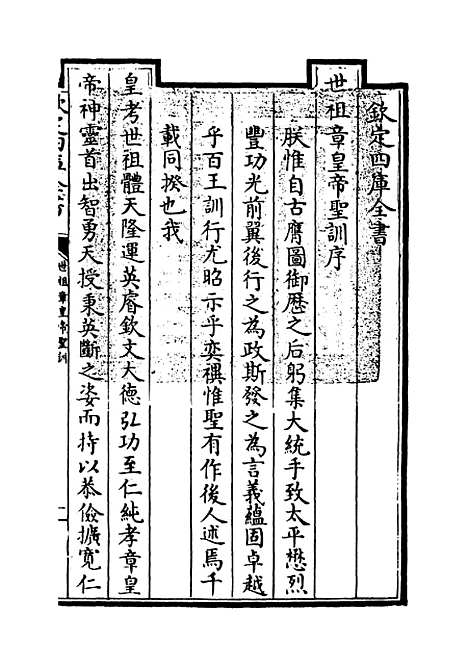 欽定四庫全書
世祖章皇帝聖訓序
朕惟自古膺圖御歴之后躬集大統手致太平懋烈
豐功光前翼後行之為政斯發之為言義蘊固卓越
乎百王訓行尤昭示乎奕禩惟聖有作後人述焉千
載同揆也我
皇考世祖體天隆運英睿欽文大德弘功至仁純孝章皇
帝神靈首出智勇天授秉英斷之姿而持以恭儉擴寛仁
世祖章皇帝聖訓